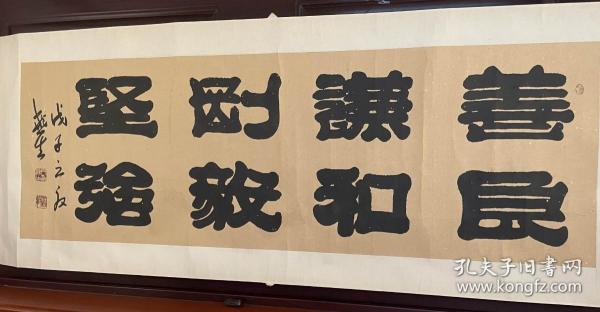 善良
謙和
剛毅
堅強
戊子之秋
孔夫子旧书网
www.kongfz.com